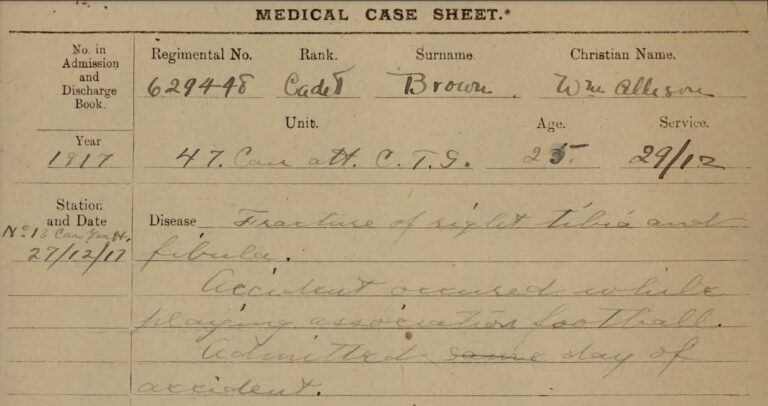 MEDICAL CASE SHEET.*
No. in Admission and Discharge Book.
Regimental No. Rank. Surname. Christian Name.
629448 Cadet Brown. Wm Allison
Unit. Age. Service.
Year
1917 47. Can att. C.T.S. 25. 29/12
Station and Date
No. 13 Can
27/12/17
Disease Fracture of right tibia and
fibula.
Accident occured while
playing association football.
Admitted same day of
accident.